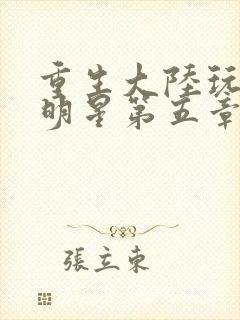 重生大陸玩
明星第五章
張立東